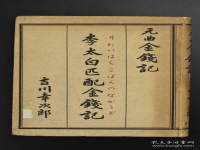 元曲金錢記
李太白匹配金錢記
吉川幸次郎